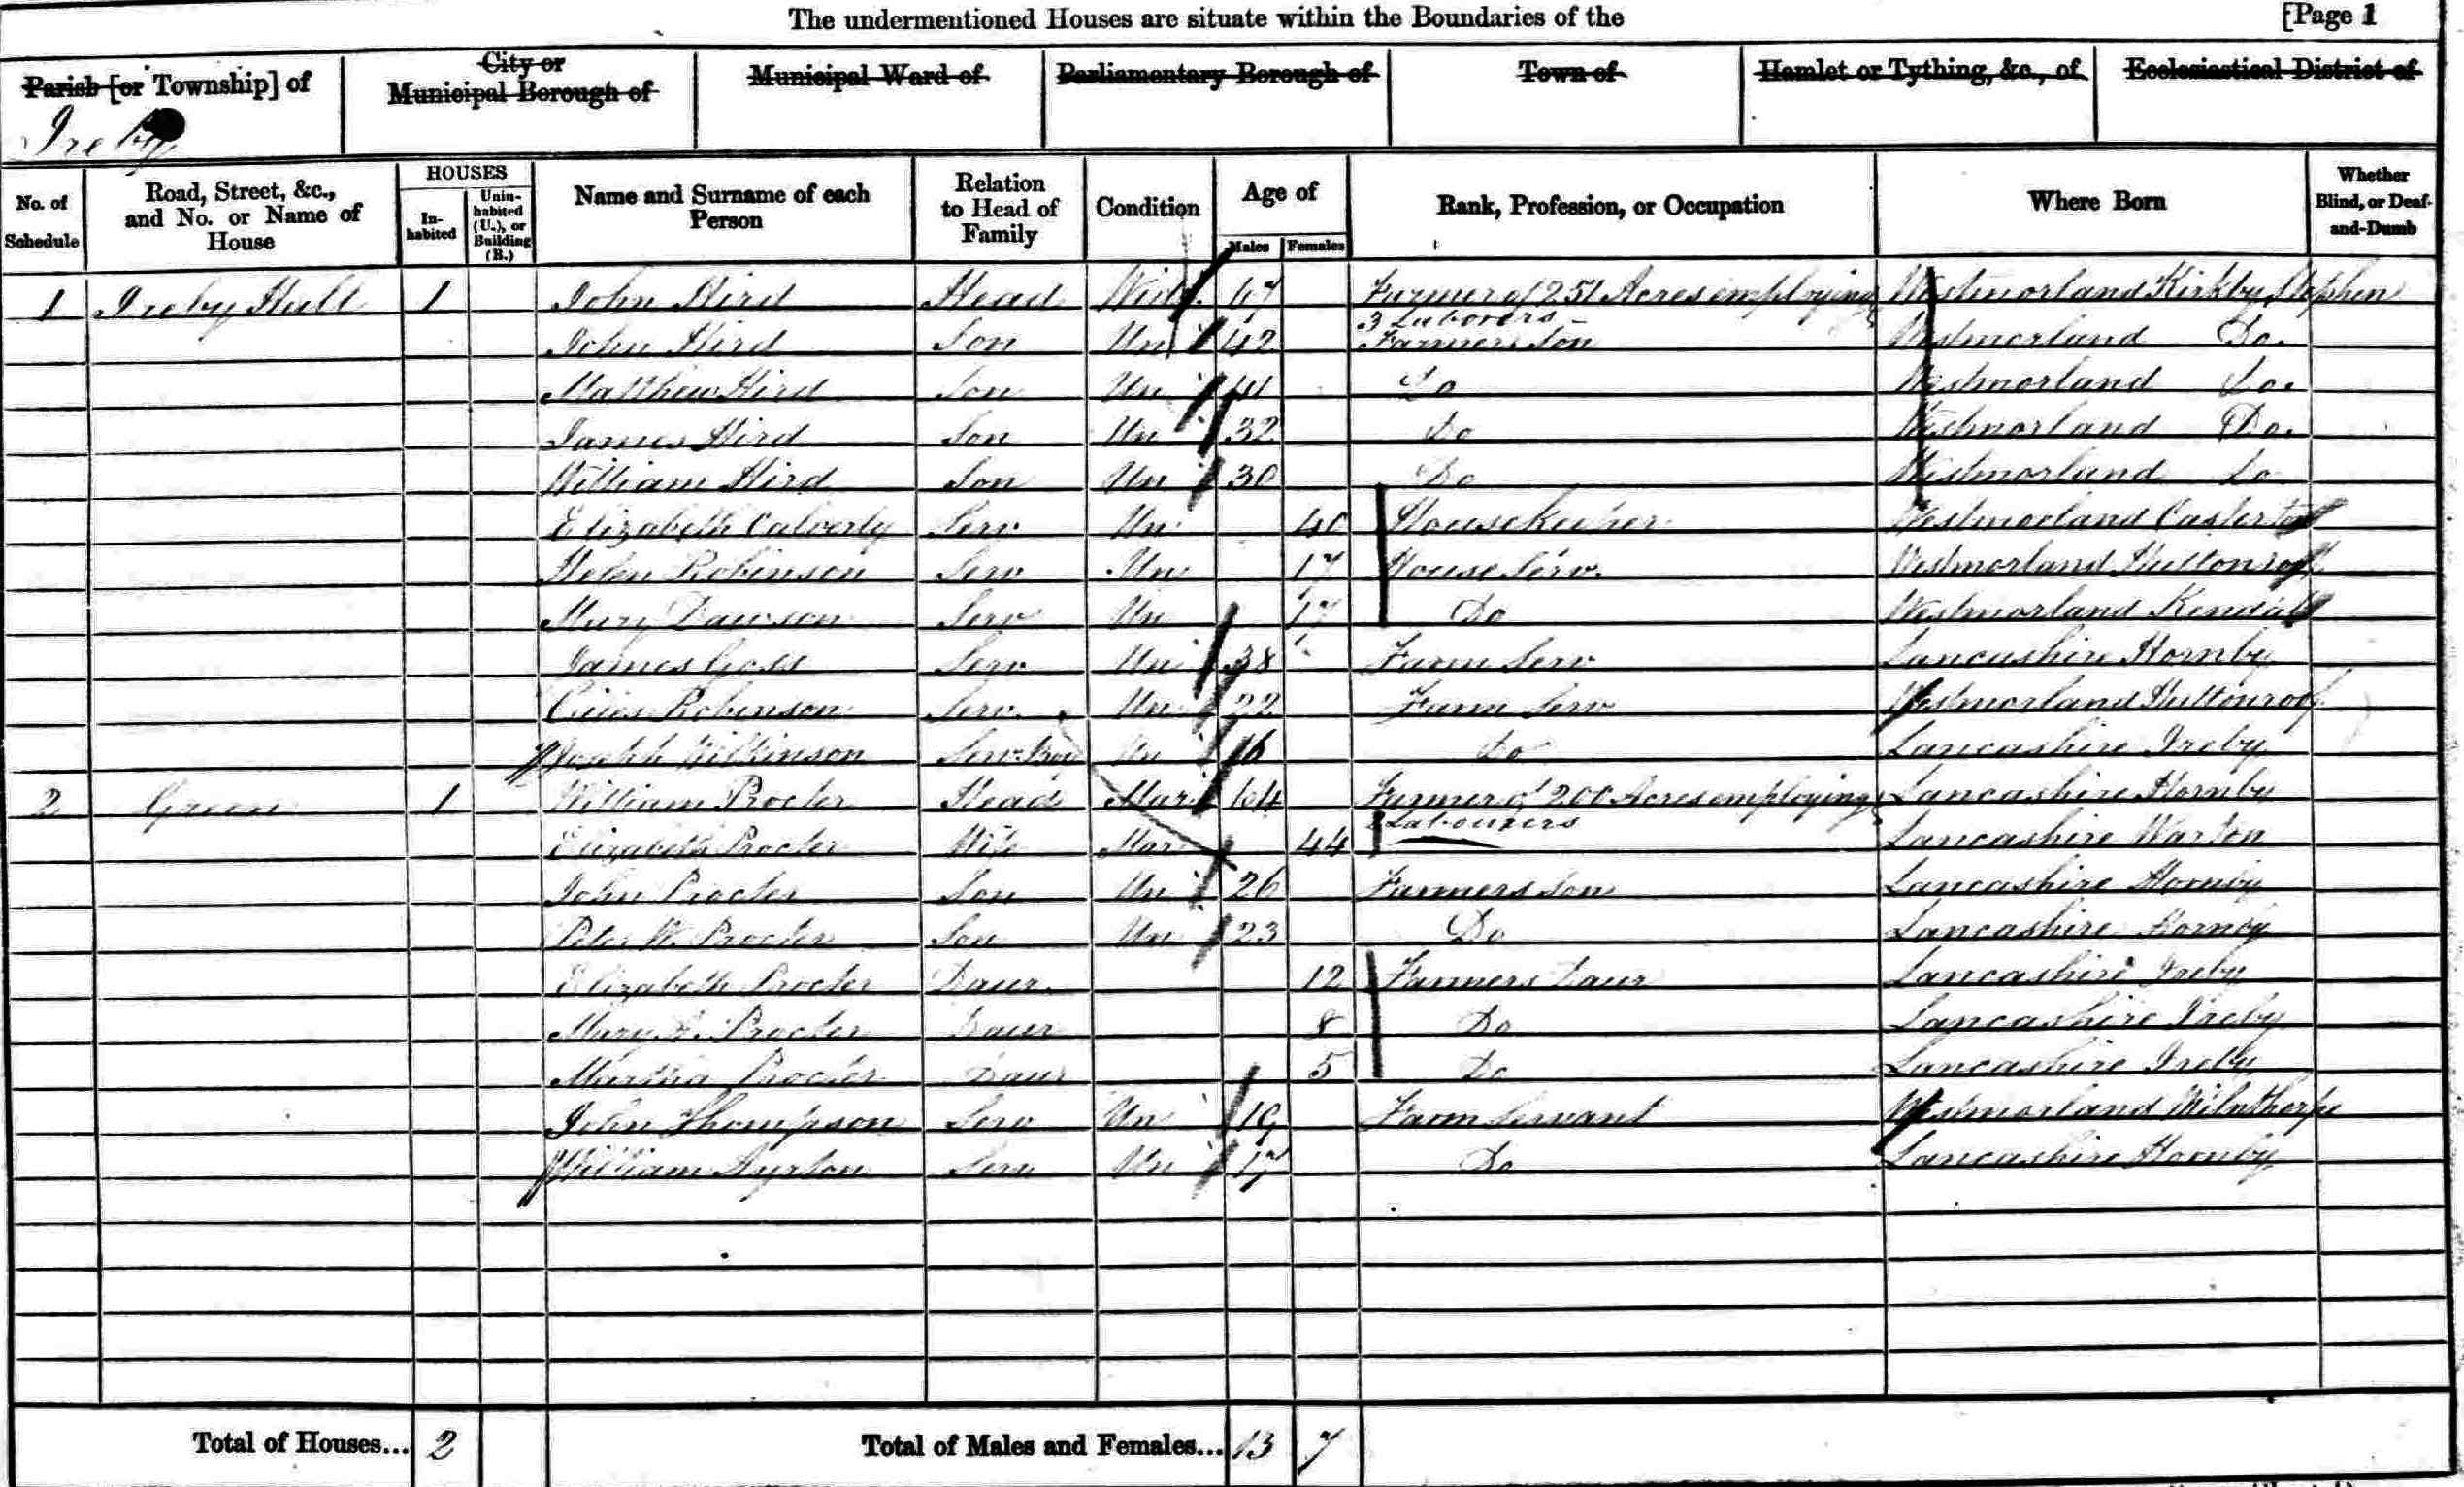 The undermentioned Houses are situate within the Boundaries of the [Page 1
Parish [or Township] of City or Municipal Borough of Municipal Ward of Parliamentary Borough of Town of Hamlet or Tything, &c., of Ecclesiastical District of
Ireby
No. of Schedule Road, Street, &c., and No. or Name of House HOUSES Inhabited Uninhabited (U.), or Building (B.) Name and Surname of each Person Relation to Head of Family Condition Age of Males Females Rank, Profession, or Occupation Where Born Whether Blind, or Deaf-and-Dumb
1 Ireby Hall 1 John Hird Head Widr. 67 Farmer of 251 Acres employing Westmorland Kirkby Stephen
3 Laborers
John Hird Son Un 42 Farmers Son Westmorland Do.
Matthew Hird Son Un 41 Do Westmorland Do.
James Hird Son Un 32 Do Westmorland Do.
William Hird Son Un 30 Do Westmorland Do
Elizabeth Calverly Serv Un 40 Housekeeper Westmorland Casterton
Helen Robinson Serv Un 17 House Serv. Westmorland Huttonroof
Mary Dawson Serv Un 17 Do Westmorland Kendal
James Serv Un 38 Farm Serv Lancashire Hornby
Robinson Serv. Un 22 Farm Serv Westmorland Huttonroof
Joseph Wilkinson Serv. Boy Un 16 Do Lancashire Ireby
2 Green 1 William Procter Head Mar 64 Farmer of 200 Acres employing Lancashire Hornby
2 Labourers
Elizabeth Procter Wife Mar 44 Lancashire Warton
John Procter Son Un 26 Farmers Son Lancashire Hornby
Peter W. Procter Son Un 23 Do Lancashire Hornby
Elizabeth Procter Daur. 12 Farmers Daur Lancashire Ireby
Mary Procter Daur 8 Do Lancashire Ireby
Martha Procter Daur 5 Do Lancashire Ireby
John Thompson Serv Un 19 Farm Servant Westmorland Milnthorpe
William Ayrton Serv Un 17 Do Lancashire Hornby
Total of Houses... 2 Total of Males and Females... 13 7